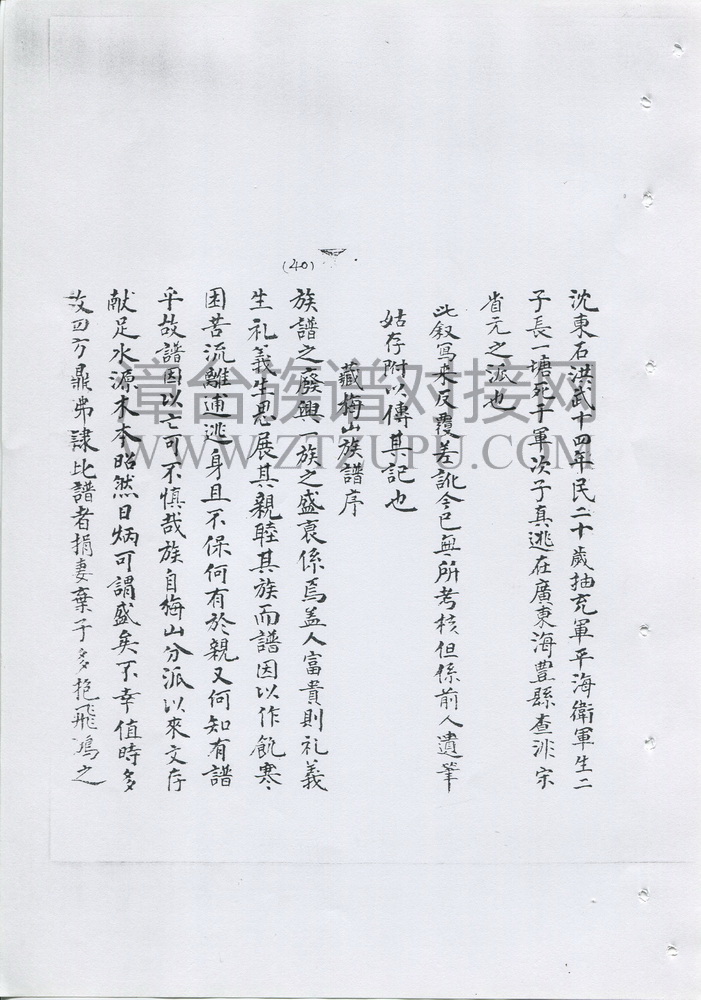 (40)
沈東石洪武十四年民二十歲抽充軍平海衛軍生二
子長一塘死于軍次子真逃在廣東海豐縣查非宋
省元之派也
此叙寫來反覆差訛今已無所考核但係前人遺筆
姑存附以傳其記也
藏梅山族譜序
族譜之廢興一族之盛衰係焉盖人富貴則礼義
生礼義生思展其親睦其族而譜因以作飢寒
困苦流離逋逃身且不保何有於親又何知有譜
乎故譜因以亡可不慎哉族自梅山分派以來文存
献足水源木本昭然日炳可謂盛矣不幸值時多
四方鼎沸隷比譜者捐妻棄子多抱飛鴻之
章台族谱对接网
WWW.ZTZUPU.COM